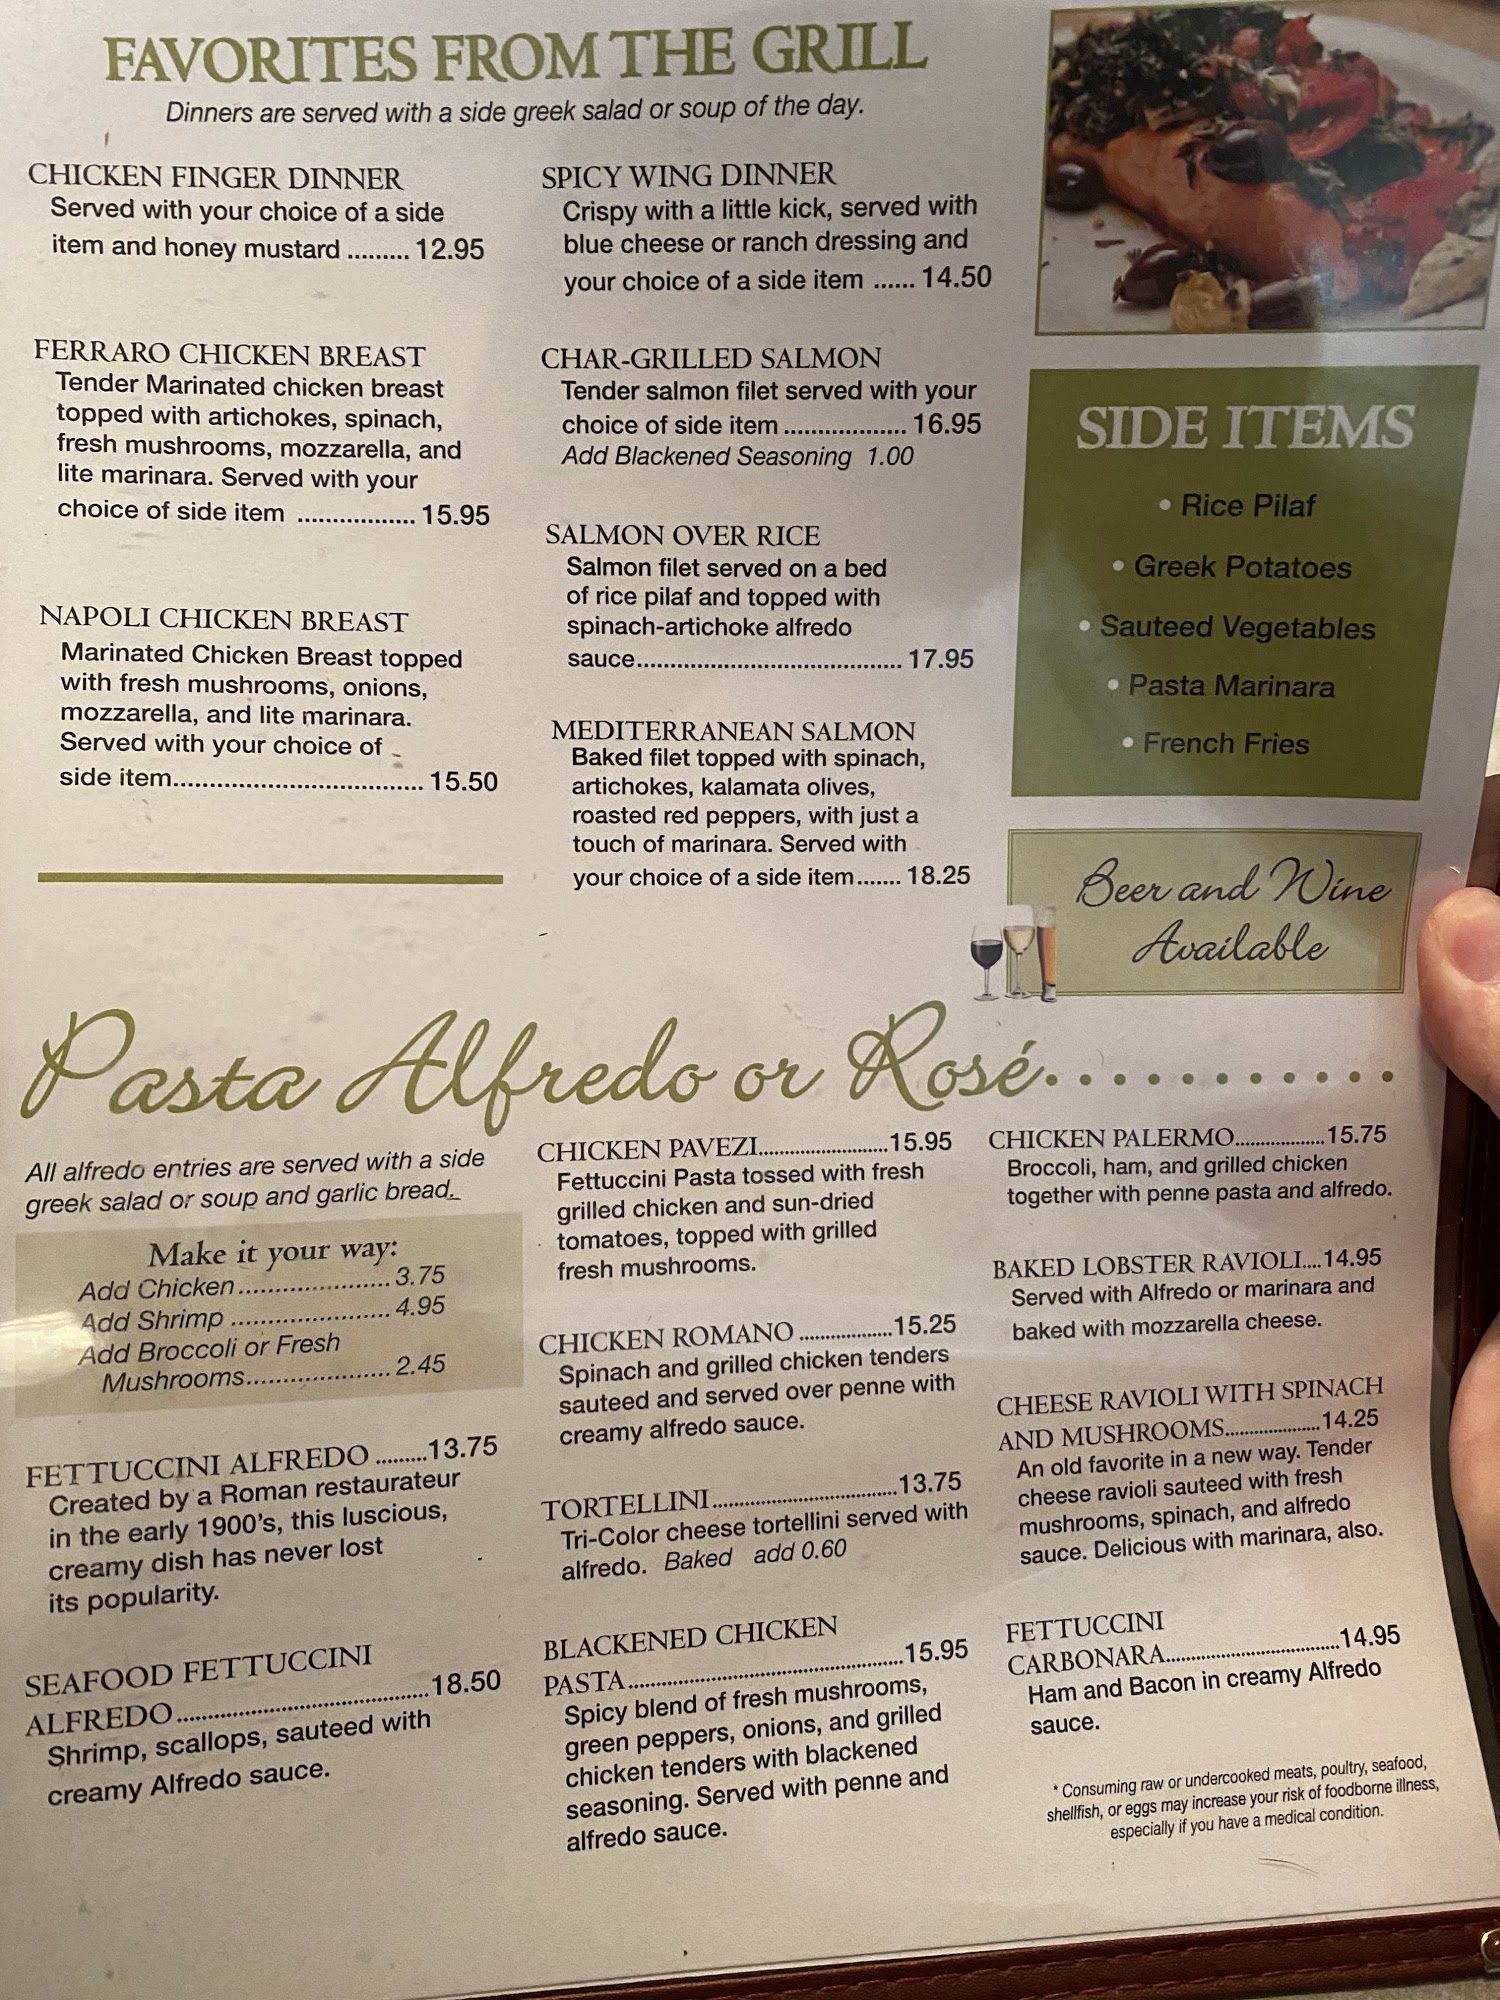 FAVORITES FROM THE GRILL
Dinners are served with a side greek salad or soup of the day.
CHICKEN FINGER DINNER
Served with your choice of a side
item and honey mustard ......... 12.95
FERRARO CHICKEN BREAST
Tender Marinated chicken breast
topped with artichokes, spinach,
fresh mushrooms, mozzarella, and
lite marinara. Served with your
choice of side item .................. 15.95
NAPOLI CHICKEN BREAST
Marinated Chicken Breast topped
with fresh mushrooms, onions,
mozzarella, and lite marinara.
Served with your choice of
side item.................................. 15.50
SPICY WING DINNER
Crispy with a little kick, served with
blue cheese or ranch dressing and
your choice of a side item ...... 14.50
CHAR-GRILLED SALMON
Tender salmon filet served with your
choice of side item .................. 16.95
Add Blackened Seasoning 1.00
SALMON OVER RICE
Salmon filet served on a bed
of rice pilaf and topped with
spinach-artichoke alfredo
sauce........................................ 17.95
MEDITERRANEAN SALMON
Baked filet topped with spinach,
artichokes, kalamata olives,
roasted red peppers, with just a
touch of marinara. Served with
your choice of a side item....... 18.25
SIDE ITEMS
• Rice Pilaf
• Greek Potatoes
• Sauteed Vegetables
• Pasta Marinara
• French Fries
Beer and Wine
Available
Pasta Alfredo or Rosé...........
All alfredo entries are served with a side
greek salad or soup and garlic bread.
Make it your way:
Add Chicken...................... 3.75
Add Shrimp ....................... 4.95
Add Broccoli or Fresh
Mushrooms..................... 2.45
FETTUCCINI ALFREDO .........13.75
Created by a Roman restaurateur
in the early 1900's, this luscious,
creamy dish has never lost
its popularity.
SEAFOOD FETTUCCINI
ALFREDO......................................18.50
Shrimp, scallops, sauteed with
creamy Alfredo sauce.
CHICKEN PAVEZI.........................15.95
Fettuccini Pasta tossed with fresh
grilled chicken and sun-dried
tomatoes, topped with grilled
fresh mushrooms.
CHICKEN ROMANO ..................15.25
Spinach and grilled chicken tenders
sauteed and served over penne with
creamy alfredo sauce.
TORTELLINI....................................13.75
Tri-Color cheese tortellini served with
alfredo. Baked add 0.60
BLACKENED CHICKEN
PASTA.....................................................15.95
Spicy blend of fresh mushrooms,
green peppers, onions, and grilled
chicken tenders with blackened
seasoning. Served with penne and
alfredo sauce.
CHICKEN PALERMO..................15.75
Broccoli, ham, and grilled chicken
together with penne pasta and alfredo.
BAKED LOBSTER RAVIOLI....14.95
Served with Alfredo or marinara and
baked with mozzarella cheese.
CHEESE RAVIOLI WITH SPINACH
AND MUSHROOMS....................14.25
An old favorite in a new way. Tender
cheese ravioli sauteed with fresh
mushrooms, spinach, and alfredo
sauce. Delicious with marinara, also.
FETTUCCINI
CARBONARA..................................14.95
Ham and Bacon in creamy Alfredo
sauce.
* Consuming raw or undercooked meats, poultry, seafood,
shellfish, or eggs may increase your risk of foodborne illness,
especially if you have a medical condition.